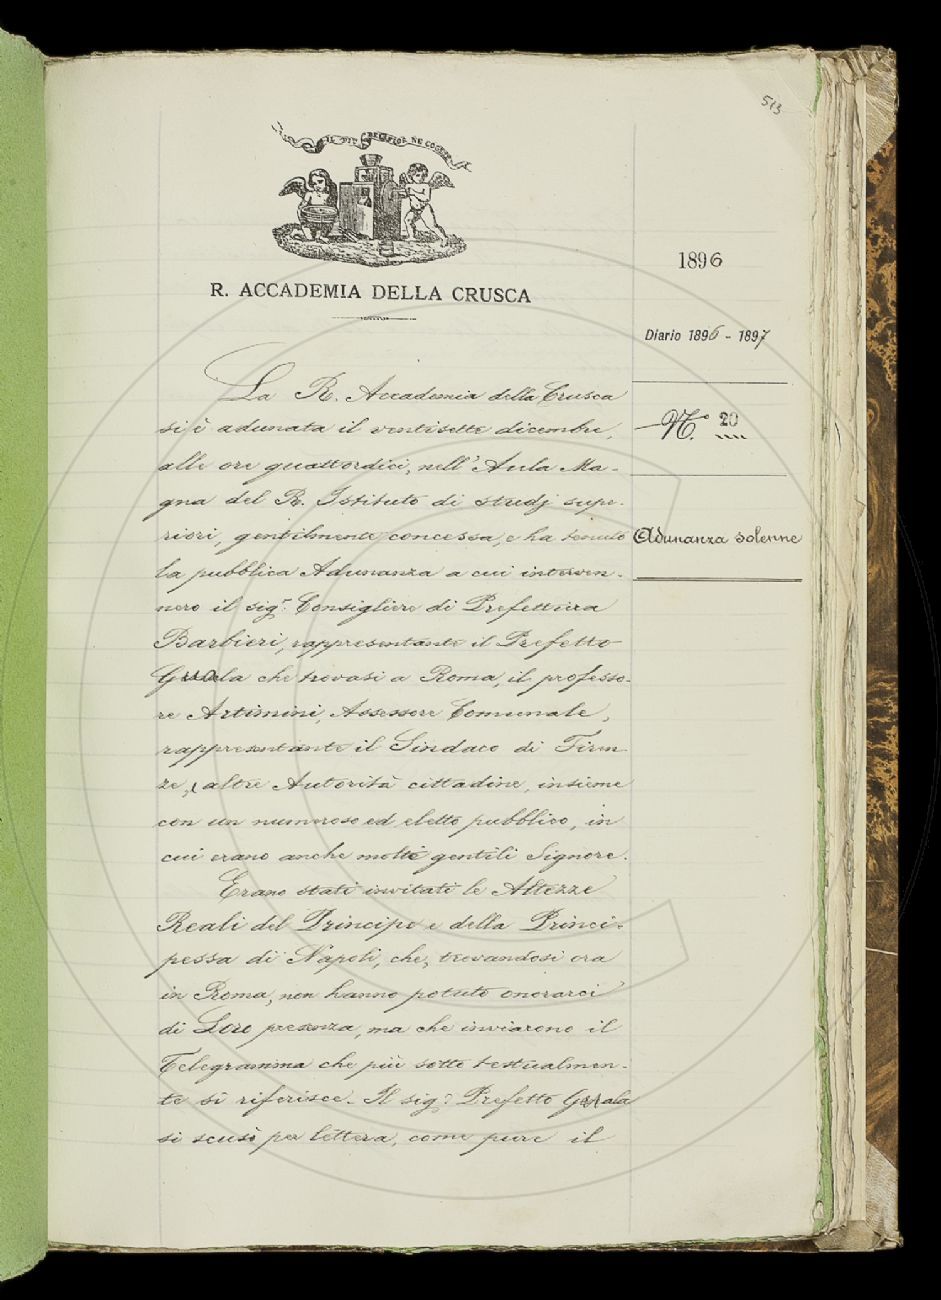 513
IL PIÙ BEL FIOR NE COGLIE
R. ACCADEMIA DELLA CRUSCA
1896
Diario 1896 - 1897
N.º 20
Adunanza solenne
La R. Accademia della Crusca
si è adunata il ventisette dicembre,
alle ore quattordici, nell'Aula Ma-
gna del R. Istituto di studj supe-
riori, gentilmente concessa, e ha tenuto
la pubblica Adunanza a cui interven-
nero il sig.r Consigliere di Prefettura
Barbieri, rappresentante il Prefetto
che trovasi a Roma, il professo-
re Artimini, Assessore Comunale,
rappresentante il Sindaco di Firen
ze, altre Autorità cittadine, insieme
con un numeroso ed eletto pubblico, in
cui erano anche molte gentili Signore.
Erano stati invitati le Altezze
Reali del Principe e della Princi-
pessa di Napoli, che, trovandosi ora
in Roma, non hanno potuto onorarci
di Loro presenza, ma che inviarono il
Telegramma che più sotto testualmen-
te si riferisce. Il sig.r Prefetto
si scusò per lettera, come pure il